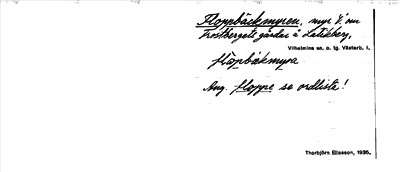 Floppbäcksmyren, myr V. om
Frostbergets gårdar å Latikberg,
Vilhelmina sn. o. tg. Västerb. l.
flåpbäkmyra
Ang. floppe se ordlista!
Thorbjörn Eliasson, 1935.